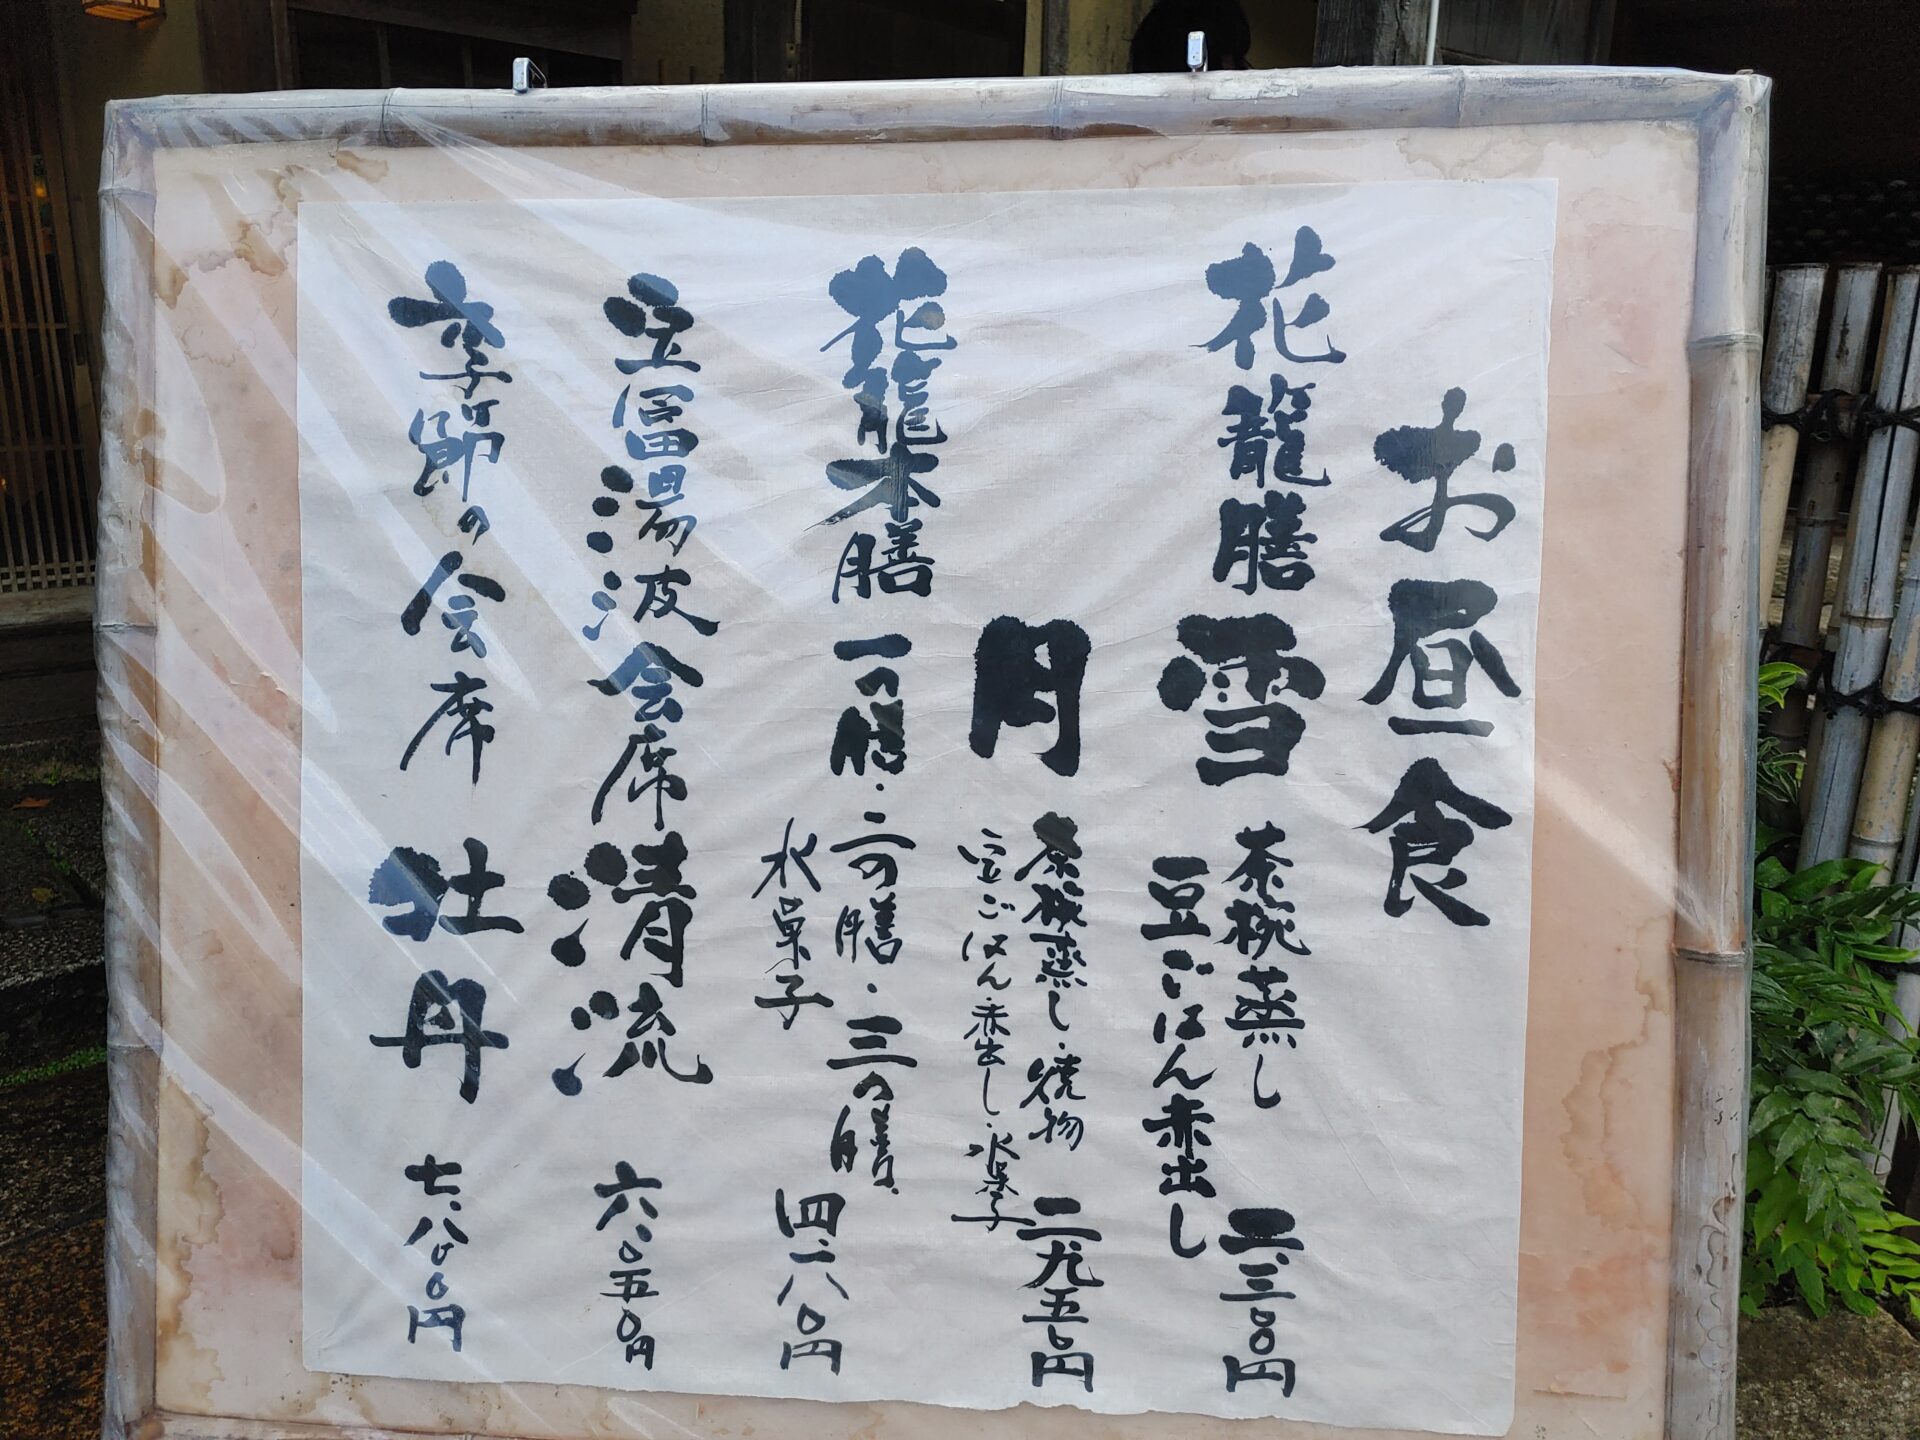 お昼食
花籠膳 雪 茶碗蒸し 二、三〇〇円
豆ごはん 赤出し
月 茶碗蒸し・焼物 二九五〇円
豆ごはん・赤出し・水菓子
花籠本膳 一の膳・二の膳・三の膳 四、二八〇円
水菓子
豆冨湯波会席 清流 六、〇五〇円
季節の会席 牡丹 七、八〇〇円